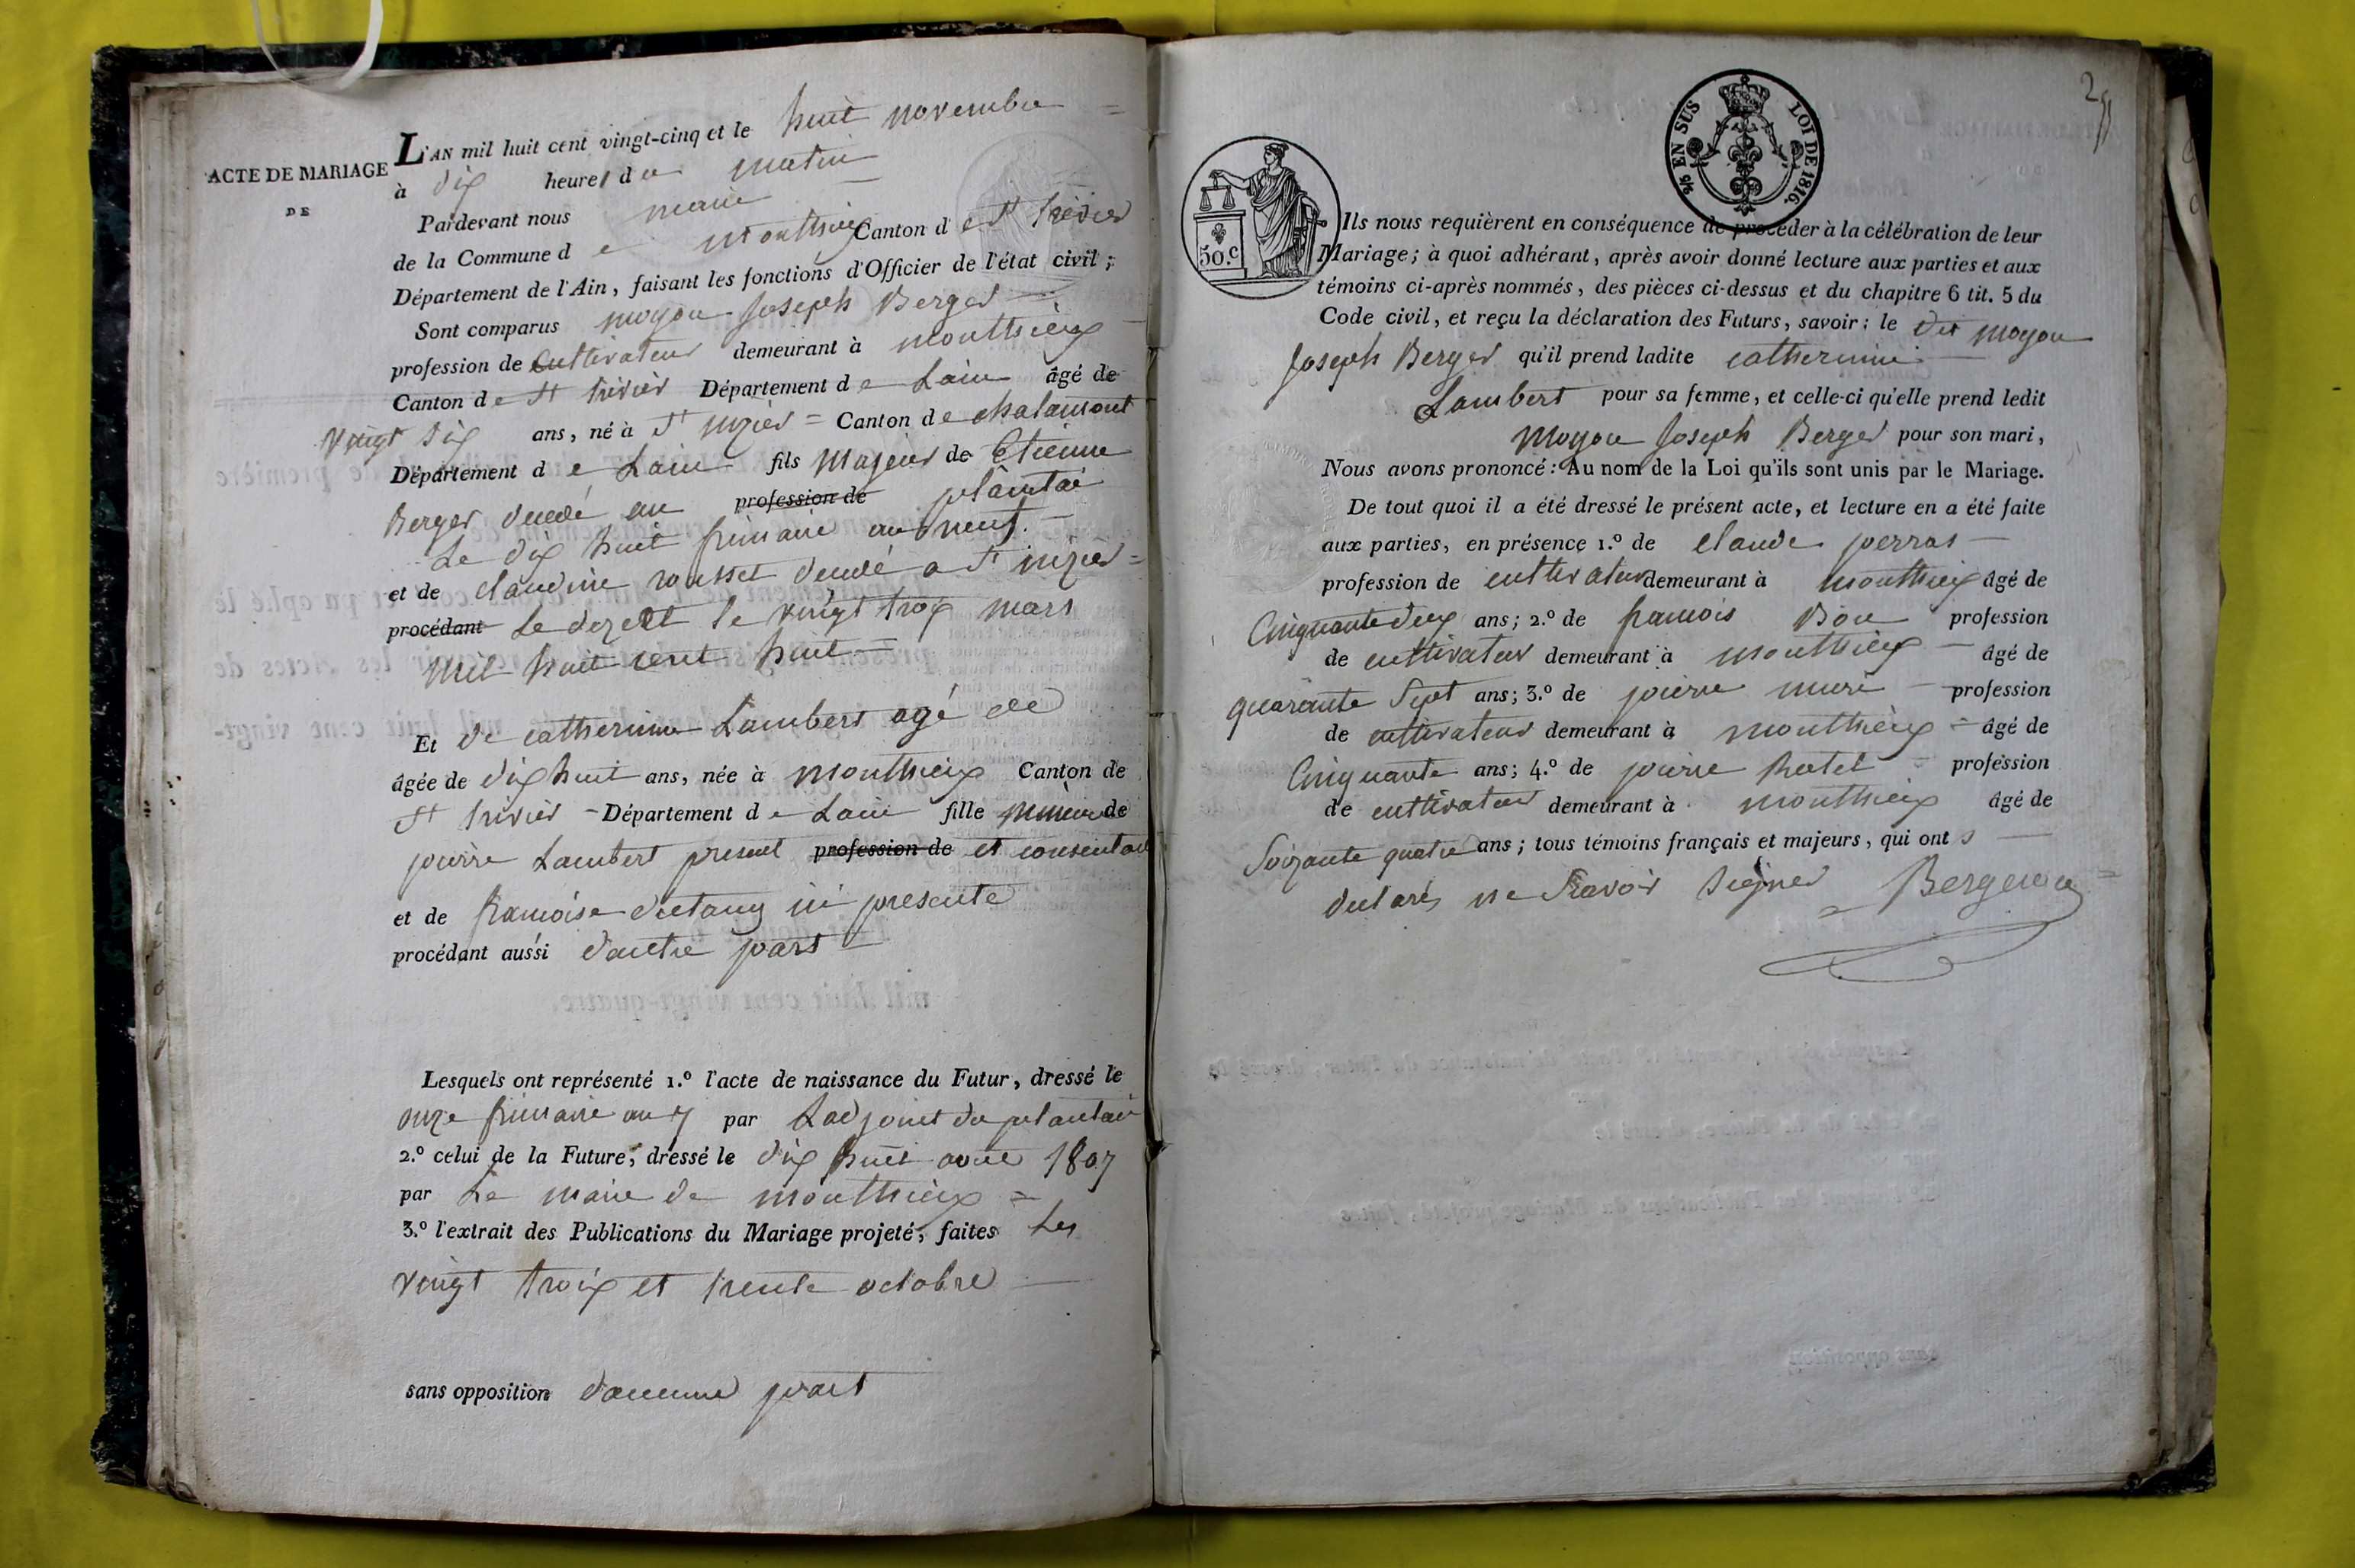 L'AN mil huit cent vingt-cinq et le huit novembre
ACTE DE MARIAGE
DE
à dix heures du matin
Pardevant nous maire
de la Commune de Monthieux Canton de St trivier
Département de l'Ain, faisant les fonctions d'Officier de l'état civil;
Sont comparus moyon Joseph Berger
profession de cultivateur demeurant à monthieux
Canton de St trivier Département de Lain âgé de
vingt six ans, né à St nizier = Canton de chalamont
Département de Lain fils majeur de Etienne
Berger decedé au profession de plantai
Le dix huit frimaire an neuf.
et de claudine rousset decedé a St nizier =
procédant Le dezert le vingt troix mars
mil huit cent huit
Et de catherinne Lambert agé de
âgée de dix huit ans, née à monthieux Canton de
St trivier - Département de Lain fille mineure de
pierre Lambert present profession de et consentant
et de francoise ici presente
procédant aussi d'autre part
Lesquels ont représenté 1.º l'acte de naissance du Futur, dressé le
onze frimaire an 7 par Ladjoint du plantai
2.º celui de la Future, dressé le dix huit 1807
par Le maire de monthieux =
3.º l'extrait des Publications du Mariage projeté, faites Les
vingt troix et trente octobre
sans opposition daucune part
2
5/6 EN SUS LOI DE 1816.
50.c
Ils nous requièrent en conséquence de procéder à la célébration de leur
Mariage; à quoi adhérant, après avoir donné lecture aux parties et aux
témoins ci-après nommés, des pièces ci-dessus et du chapitre 6 tit. 5 du
Code civil, et reçu la déclaration des Futurs, savoir: le dit moyon
Joseph Berger qu'il prend ladite catherinne
Lambert pour sa femme, et celle-ci qu'elle prend ledit
Moyon Joseph Berger pour son mari,
Nous avons prononcé: Au nom de la Loi qu'ils sont unis par le Mariage.
De tout quoi il a été dressé le présent acte, et lecture en a été faite
aux parties, en présence 1.º de claude perras
profession de cultivateur demeurant à monthieux âgé de
Cinquante deux ans; 2.º de francois profession
de cultivateur demeurant à monthieux âgé de
quarante Sept ans; 3.º de pierre profession
de cultivateur demeurant à monthieux = âgé de
Cinquante ans; 4.º de pierre profession
de cultivateur demeurant à monthieux âgé de
Soixante quatre ans; tous témoins français et majeurs, qui ont
declarés ne Savoir Signer